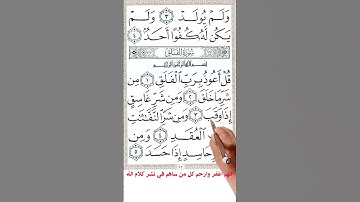 وَلَمْ يُولَدْ ٣ وَلَمْ
يَكُن لَّهُۥ كُفُوًا أَحَدٌۢ ٤
سُورَةُ الْفَلَقِ
بِسْمِ اللَّهِ الرَّحْمَٰنِ الرَّحِيمِ
قُلْ أَعُوذُ بِرَبِّ الْفَلَقِ ١ مِن
شَرِّ مَا خَلَقَ ٢ وَمِن شَرِّ غَاسِقٍ
إِذَا وَقَبَ ٣ وَمِن شَرِّ النَّفَّٰثَٰتِ
الْعُقَدِ ٤ وَمِن
حَاسِدٍ إِذَا حَسَدَ ٥
اللهم اغفر وارحم كل من ساهم في نشر كلام الله